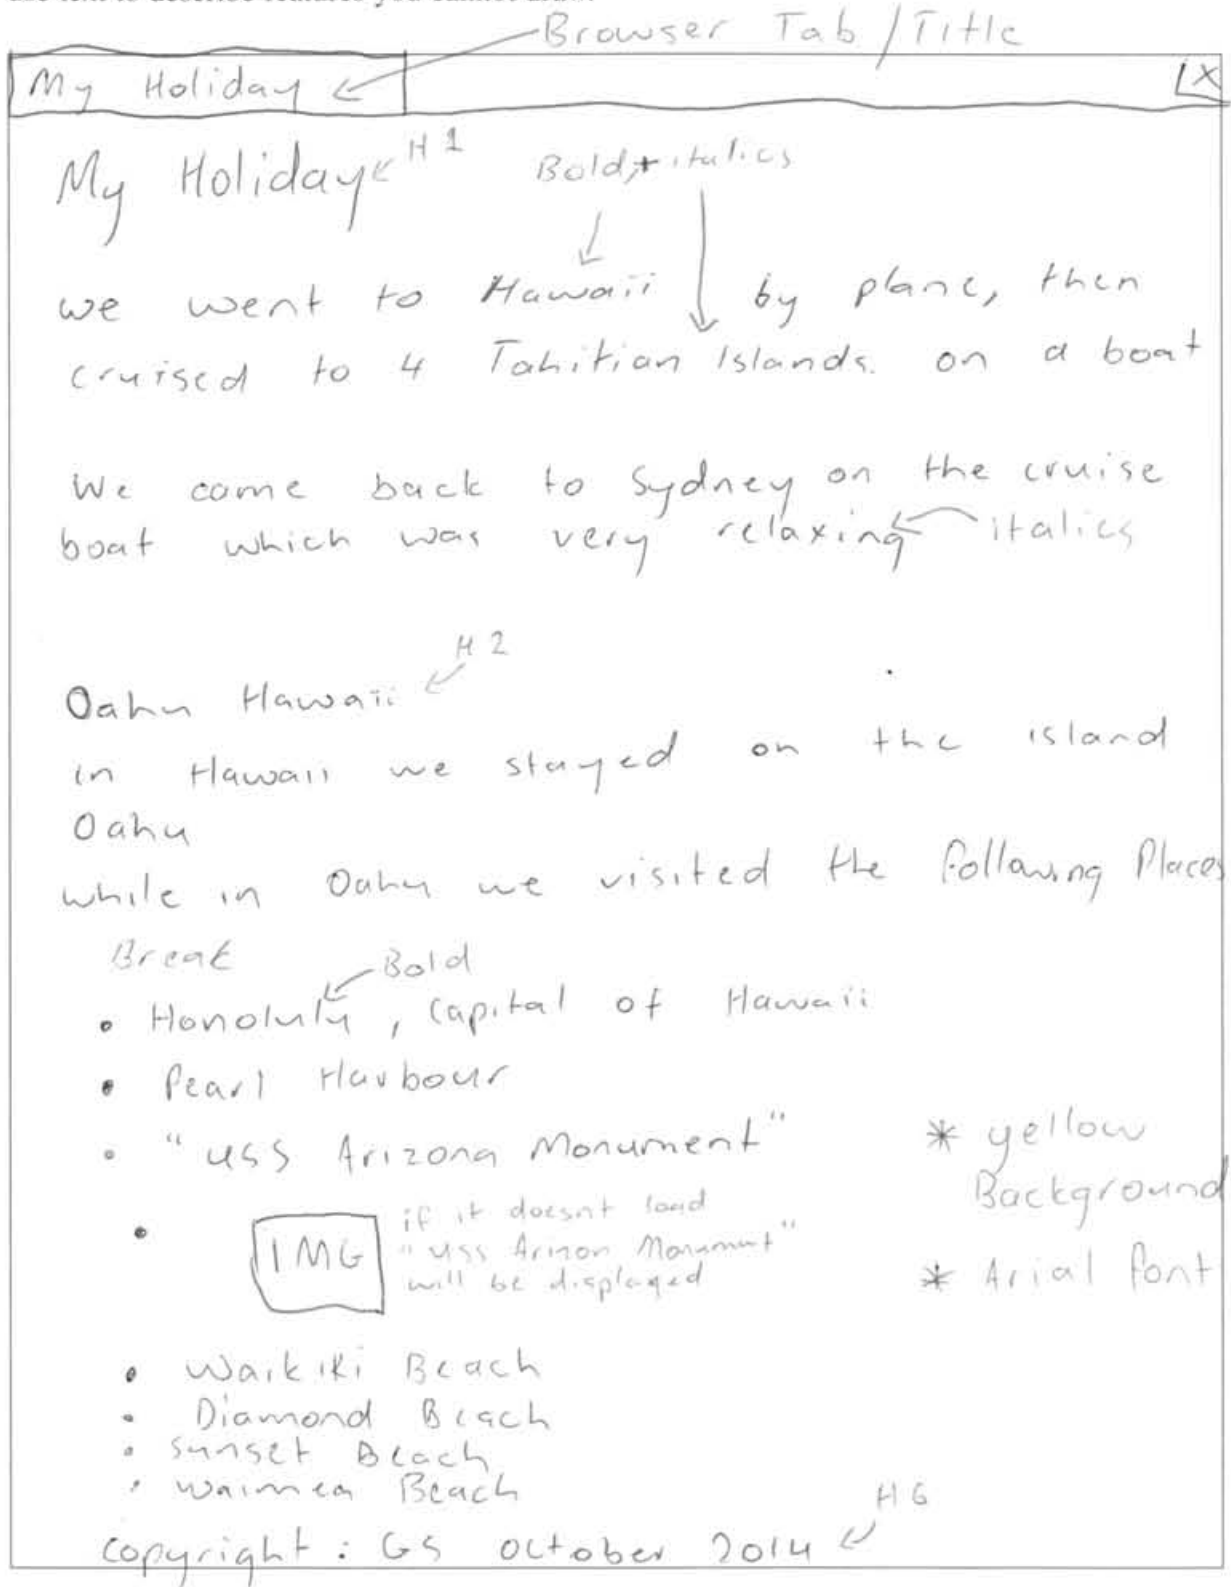 Browser Tab / Title
My Holiday
X
My Holiday H1
Bold + italics
we went to Hawaii by plane, then
cruised to 4 Tahitian Islands. on a boat
We came back to Sydney on the cruise
boat which was very relaxing italics
H2
Oahu Hawaii
in Hawaii we stayed on the island
Oahu
while in Oahu we visited the following Places
Break
Bold
• Honolulu, capital of Hawaii
• Pearl Harbour
• "USS Arizona Monument"
* yellow
Background
• IMG
if it doesnt load
"USS Arizon Monument"
will be displayed
* Arial font
• Waikiki Beach
• Diamond Beach
• Sunset Beach
• Waimea Beach
H6
copyright: GS October 2014